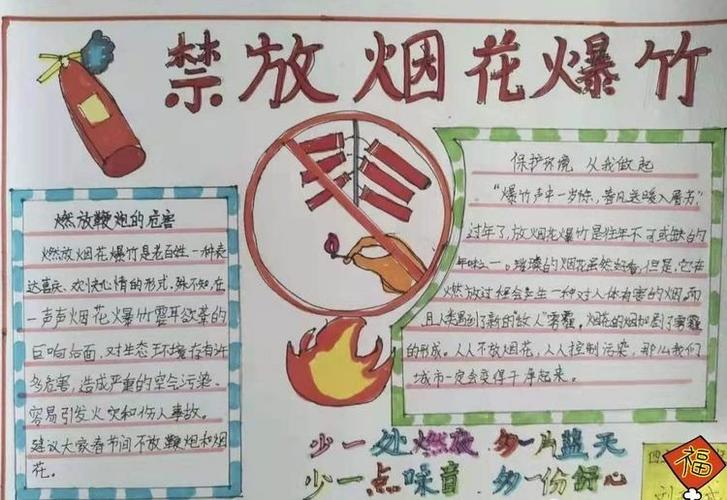 禁放烟花爆竹
燃放鞭炮的危害
燃放烟花爆竹是老百姓一种表
达喜庆、欢快心情的形式。殊不知,在
一声声烟花爆竹震耳欲聋的
巨响后面,对生态环境存在许
多危害,造成严重的空气污染、
容易引发火灾和伤人事故。
建议大家春节间不放鞭炮和烟
花。
保护环境 从我做起
“爆竹声中一岁除,春风送暖入屠苏”
过年了,放烟花爆竹是往年不可或缺的
年味之一。璀璨的烟花虽然好看,但是,它在
燃放过程会产生一种对人体有害的烟。而
且人类遇到了新的“敌人”雾霾。烟花的烟加剧了雾霾
的形成。人人不放烟花,人人控制污染,那么我们
城市一定会变得干净起来。
少一处燃放 多一片蓝天
少一点噪音 多一份舒心
四
福